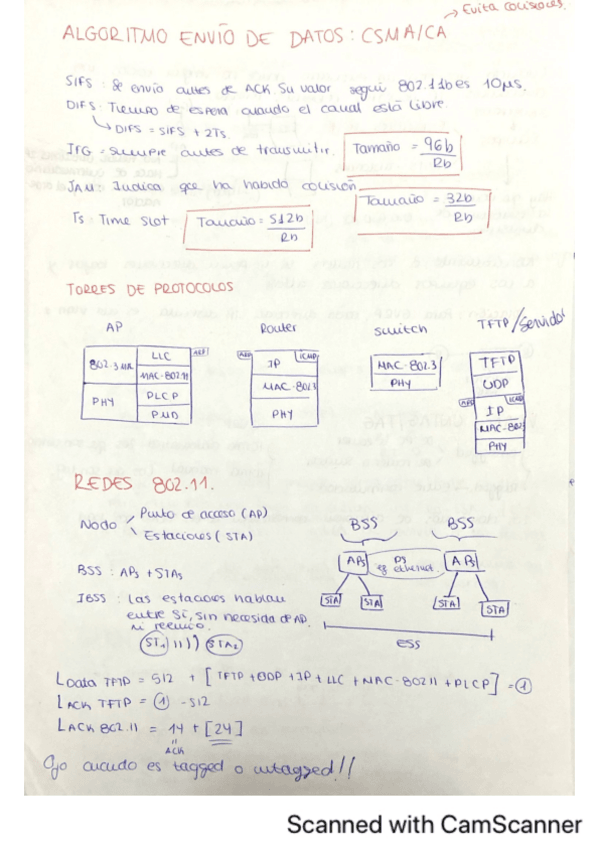 → Evita colisiones.
ALGORITMO ENVÍO DE DATOS: CSMA/CA
SIFS: Se envío antes de ACK Su valor según 802.11b es 10µs.
DIFS: Tiempo de espera cuando el canal está libre.
↳ DIFS = SIFS + 2Ts.
IFG = Siempre antes de transmitir. Tamaño = 96b / Rb
JAM Indica que ha habido colisión. Tamaño = 32b / Rb
Ts: Time Slot Tamaño = 512b / Rb
TORRES DE PROTOCOLOS
AP Router Switch TFTP/Servidor
LLC
MAC-802.11
PHY PLCP
PMD
ARP
ARP IP ICMP
MAC-802.3
PHY
MAC-802.3
PHY
TFTP
UDP
ARP IP ICMP
MAC-802.3
PHY
REDES 802.11.
Nodo Punto de acceso (AP)
Estaciones (STA)
BSS BSS
BSS: APs + STAs
APs DS ethernet. APs
STA STA STA STA
ESS
IBSS: Las estaciones hablan
entre sí, sin necesidad de AP.
STA1 )))) STA2
L Data TFTP = 512 + [TFTP + UDP + IP + LLC + MAC-80211 + PLCP] = ①
L ACK TFTP = ① - 512
L ACK 802.11 = 14 + [24]
"
ACK
Ojo cuando es tagged o untagged!!
Scanned with CamScanner